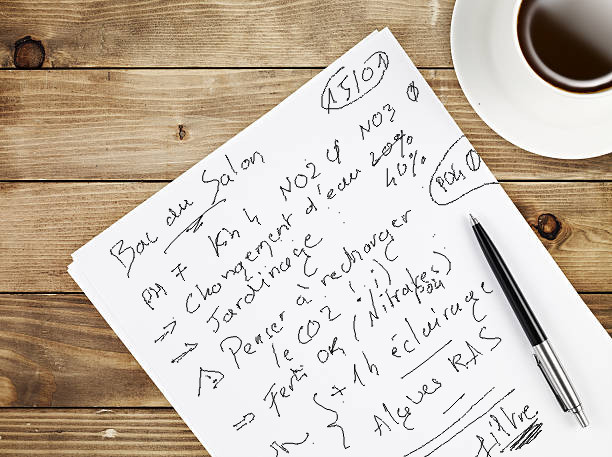 15/01
Bac du Salon
PH 7 Kh 4 NO2 φ NO3 φ
PO4 φ
=> Changement d'eau 20% 40%
=> Jardinage
=> Penser à recharger
le CO2 ;)
=> Ferti OK (Nitrates)
PO4
+ 1h éclairage
Algues RAS
filtre